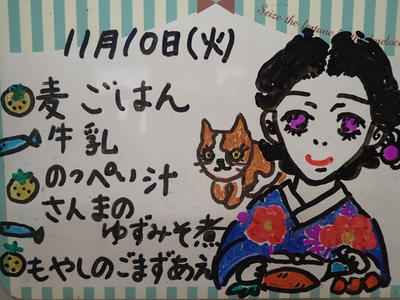 Seize the fortune
11月10日(火)
麦ごはん
牛乳
のっぺい汁
さんまの
ゆずみそ煮
もやしのごまずあえ